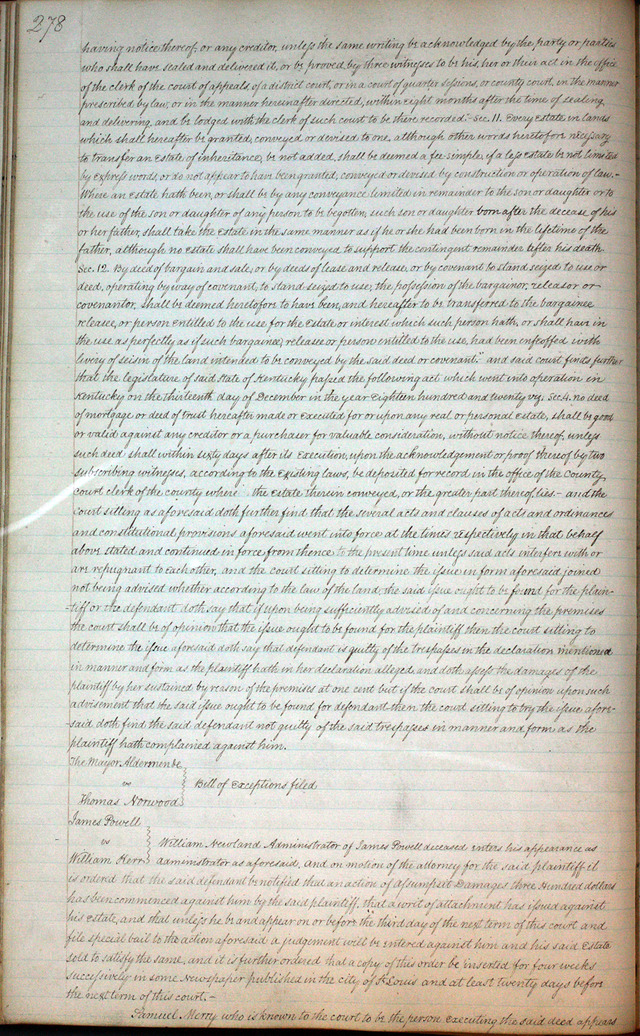 278
having notice thereof, or any creditor, unless the same writing be acknowledged by the party or parties
who shall have sealed and delivered it, or be proved by three witnesses to be his, her or their act in the office
of the clerk of the court of appeals, of a district court, or in a court of quarter sessions, or county court, in the manner
prescribed by law, or in the manner hereinafter directed, within eight months after the time of sealing
and delivering, and be lodged with the clerk of such court to be there recorded. Sec. 11. Every estate in lands
which shall hereafter be granted, conveyed or devised to one, although other words heretofore necessary
to transfer an Estate of inheritance, be not added, shall be deemed a fee simple, if a less Estate be not limited
by express words, or do not appear to have been granted, conveyed or devised by construction or operation of law.-
Where an Estate hath been, or shall be by any conveyance limited in remainder to the son or daughter or to
the use of the son or daughter of any person to be begoten, such son or daughter born after the decease of his
or her father, shall take the Estate in the same manner as if he or she had been born in the lifetime of the
father, although no Estate shall have been conveyed to support the contingent remainder after his death.
Sec. 12. By deed of bargain and sale, or by deeds of lease and release, or by covenant to stand seized to use or
deed, operating by way of covenant, to stand seized to use, the possession of the bargainor, releasor or
covenantor, shall be deemed heretofore to have been, and hereafter to be transferred to the bargainee
releasee, or person entitled to the use for the Estate or interest which such person hath, or shall have in
the use as perfectly as if such bargainee, releasee or person entitled to the use, had been enfeoffed with
livery of seisin of the land intended to be conveyed by the said deed or covenant." and said court finds further
that the legislature of said State of Kentucky passed the following act which went into operation in
Kentucky on the thirteenth day of December in the year Eighteen hundred and twenty viz. Sec. 4. no deed
of mortgage or deed of trust hereafter made or Executed for or upon any real or personal Estate, shall be good
or valid against any creditor or a purchaser for valuable consideration, without notice thereof, unless
such deed shall within sixty days after its Execution, upon the acknowledgement or proof thereof by two
subscribing witnesses, according to the Existing laws, be deposited for record in the office of the County
court clerk of the county where the Estate therein conveyed, or the greater part thereof lies - and the
court sitting as aforesaid doth further find that the several acts and clauses of acts and ordinances
and constitutional provisions aforesaid went into force at the times respectively in that behalf
above stated and continued in force from thence to the present time unless said acts interfere with or
are repugnant to each other, and the court sitting to determine the issue in form aforesaid joined
not being advised whether according to the law of the land, the said issue ought to be found for the plain-
-tiff or the defendant doth say that if upon being sufficiently advised of and concerning the premises
the court shall be of opinion that the issue ought to be found for the plaintiff then the court sitting to
determine the issue aforesaid doth say that defendant is guilty of the trespasses in the declaration mentioned
in manner and form as the plaintiff hath in her declaration alleged, and doth assess the damages of the
plaintiff by her sustained by reason of the premises at one cent but if the court shall be of opinion upon such
advisement that the said issue ought to be found for defendant then the court sitting to try the issue afore-
said doth find the said defendant not guilty of the said trespasses in manner and form as the
plaintiff hath complained against him.
The Mayor Aldermen &c
vs
Bill of Exceptions filed
Thomas Norwood
James Powell
vs
William Newland Administrator of James Powell deceased enters his appearance as
William Kerr
administrator as aforesaid, and on motion of the attorney for the said plaintiff it
is ordered that the said defendant be notified that an action of assumpsit Damages three Hundred dollars
has been commenced against him by the said plaintiff, that a writ of attachment has issued against
his Estate, and that unless he be and appear on or before the third day of the next term of this court and
file special bail to the action aforesaid a judgement will be entered against him and his said Estate
sold to satisfy the same, and it is further ordered that a copy of this order be inserted for four weeks
successively in some Newspaper published in the city of St Louis and at least twenty days before
the next term of this court. -
Samuel Merry who is known to the court to be the person executing the said deed appears